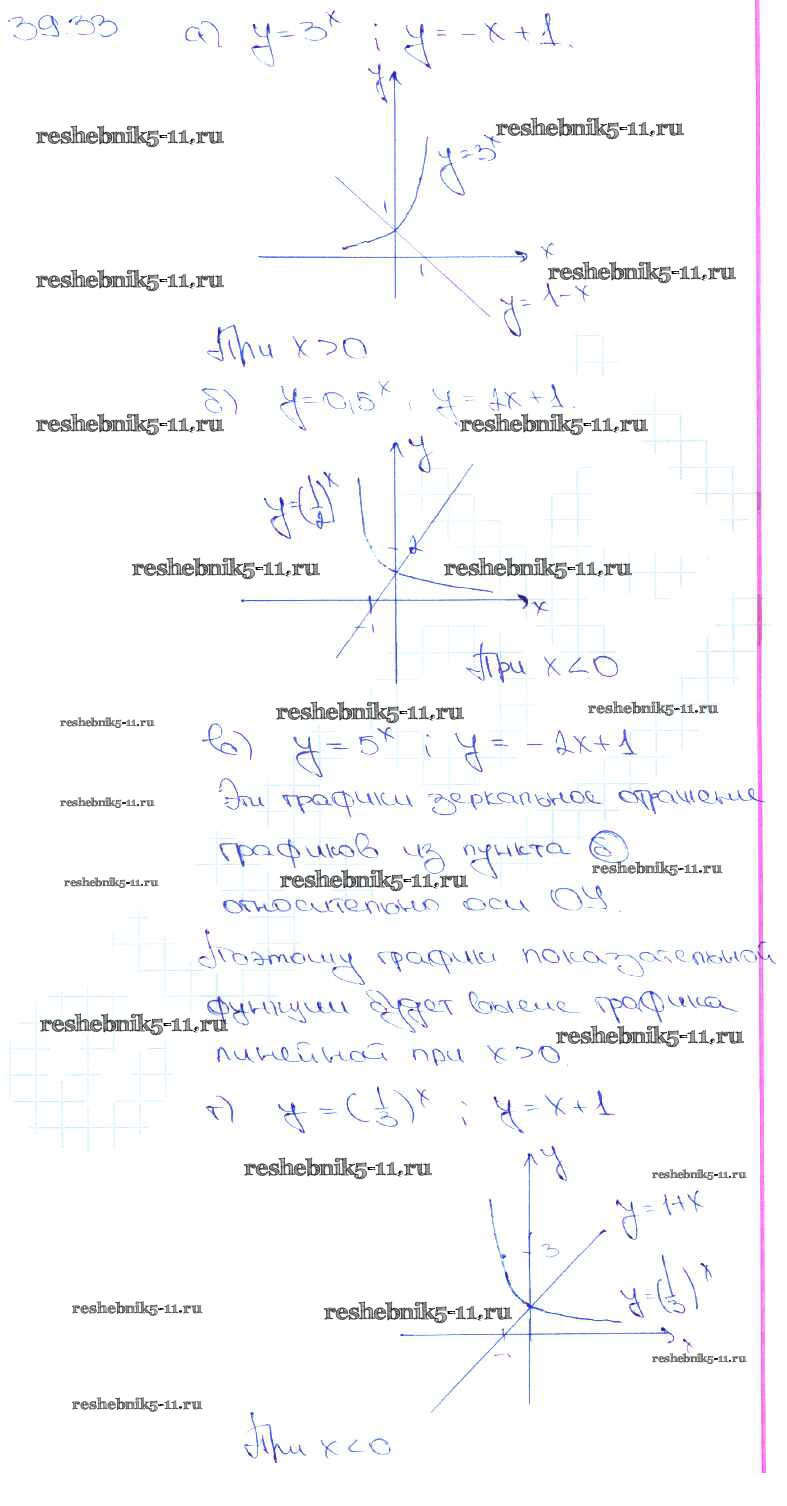 39.33 а) y=3^x ; y=-x+1.
y
reshebnik5-11.ru reshebnik5-11.ru
y=3^x
1
x
reshebnik5-11.ru 1 reshebnik5-11.ru
y=1-x
При x>0
б) y=0,5^x ; y=2x+1.
reshebnik5-11.ru reshebnik5-11.ru
y
y=(1/2)^x
2
reshebnik5-11.ru reshebnik5-11.ru
x
-1
При x<0
reshebnik5-11.ru reshebnik5-11.ru reshebnik5-11.ru
в) y=5^x ; y=-2x+1
Эти графики зеркальное отражение
reshebnik5-11.ru
графиков из пункта б
reshebnik5-11.ru
reshebnik5-11.ru reshebnik5-11.ru
относительно оси OY.
Поэтому графики показательной
функции будет выше графика
reshebnik5-11.ru reshebnik5-11.ru
линейной при x>0.
г) y=(1/3)^x ; y=x+1
y
reshebnik5-11.ru reshebnik5-11.ru
y=1+x
3
y=(1/3)^x
reshebnik5-11.ru reshebnik5-11.ru
x
-1
reshebnik5-11.ru
reshebnik5-11.ru
При x<0